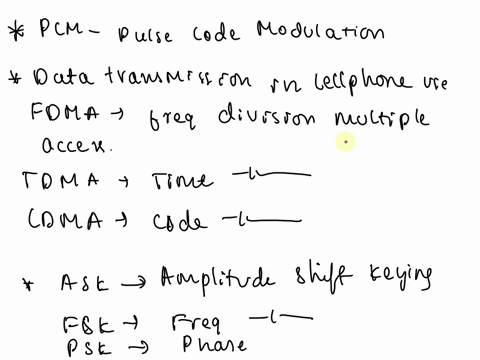 * PCM - Pulse Code Modulation
* Data transmission in cellphone use
FDMA → freq division multiple
access.
TDMA → Time —"—
CDMA → Code —"—
* ASK → Amplitude shift keying
FSK → Freq —"—
PSK → Phase